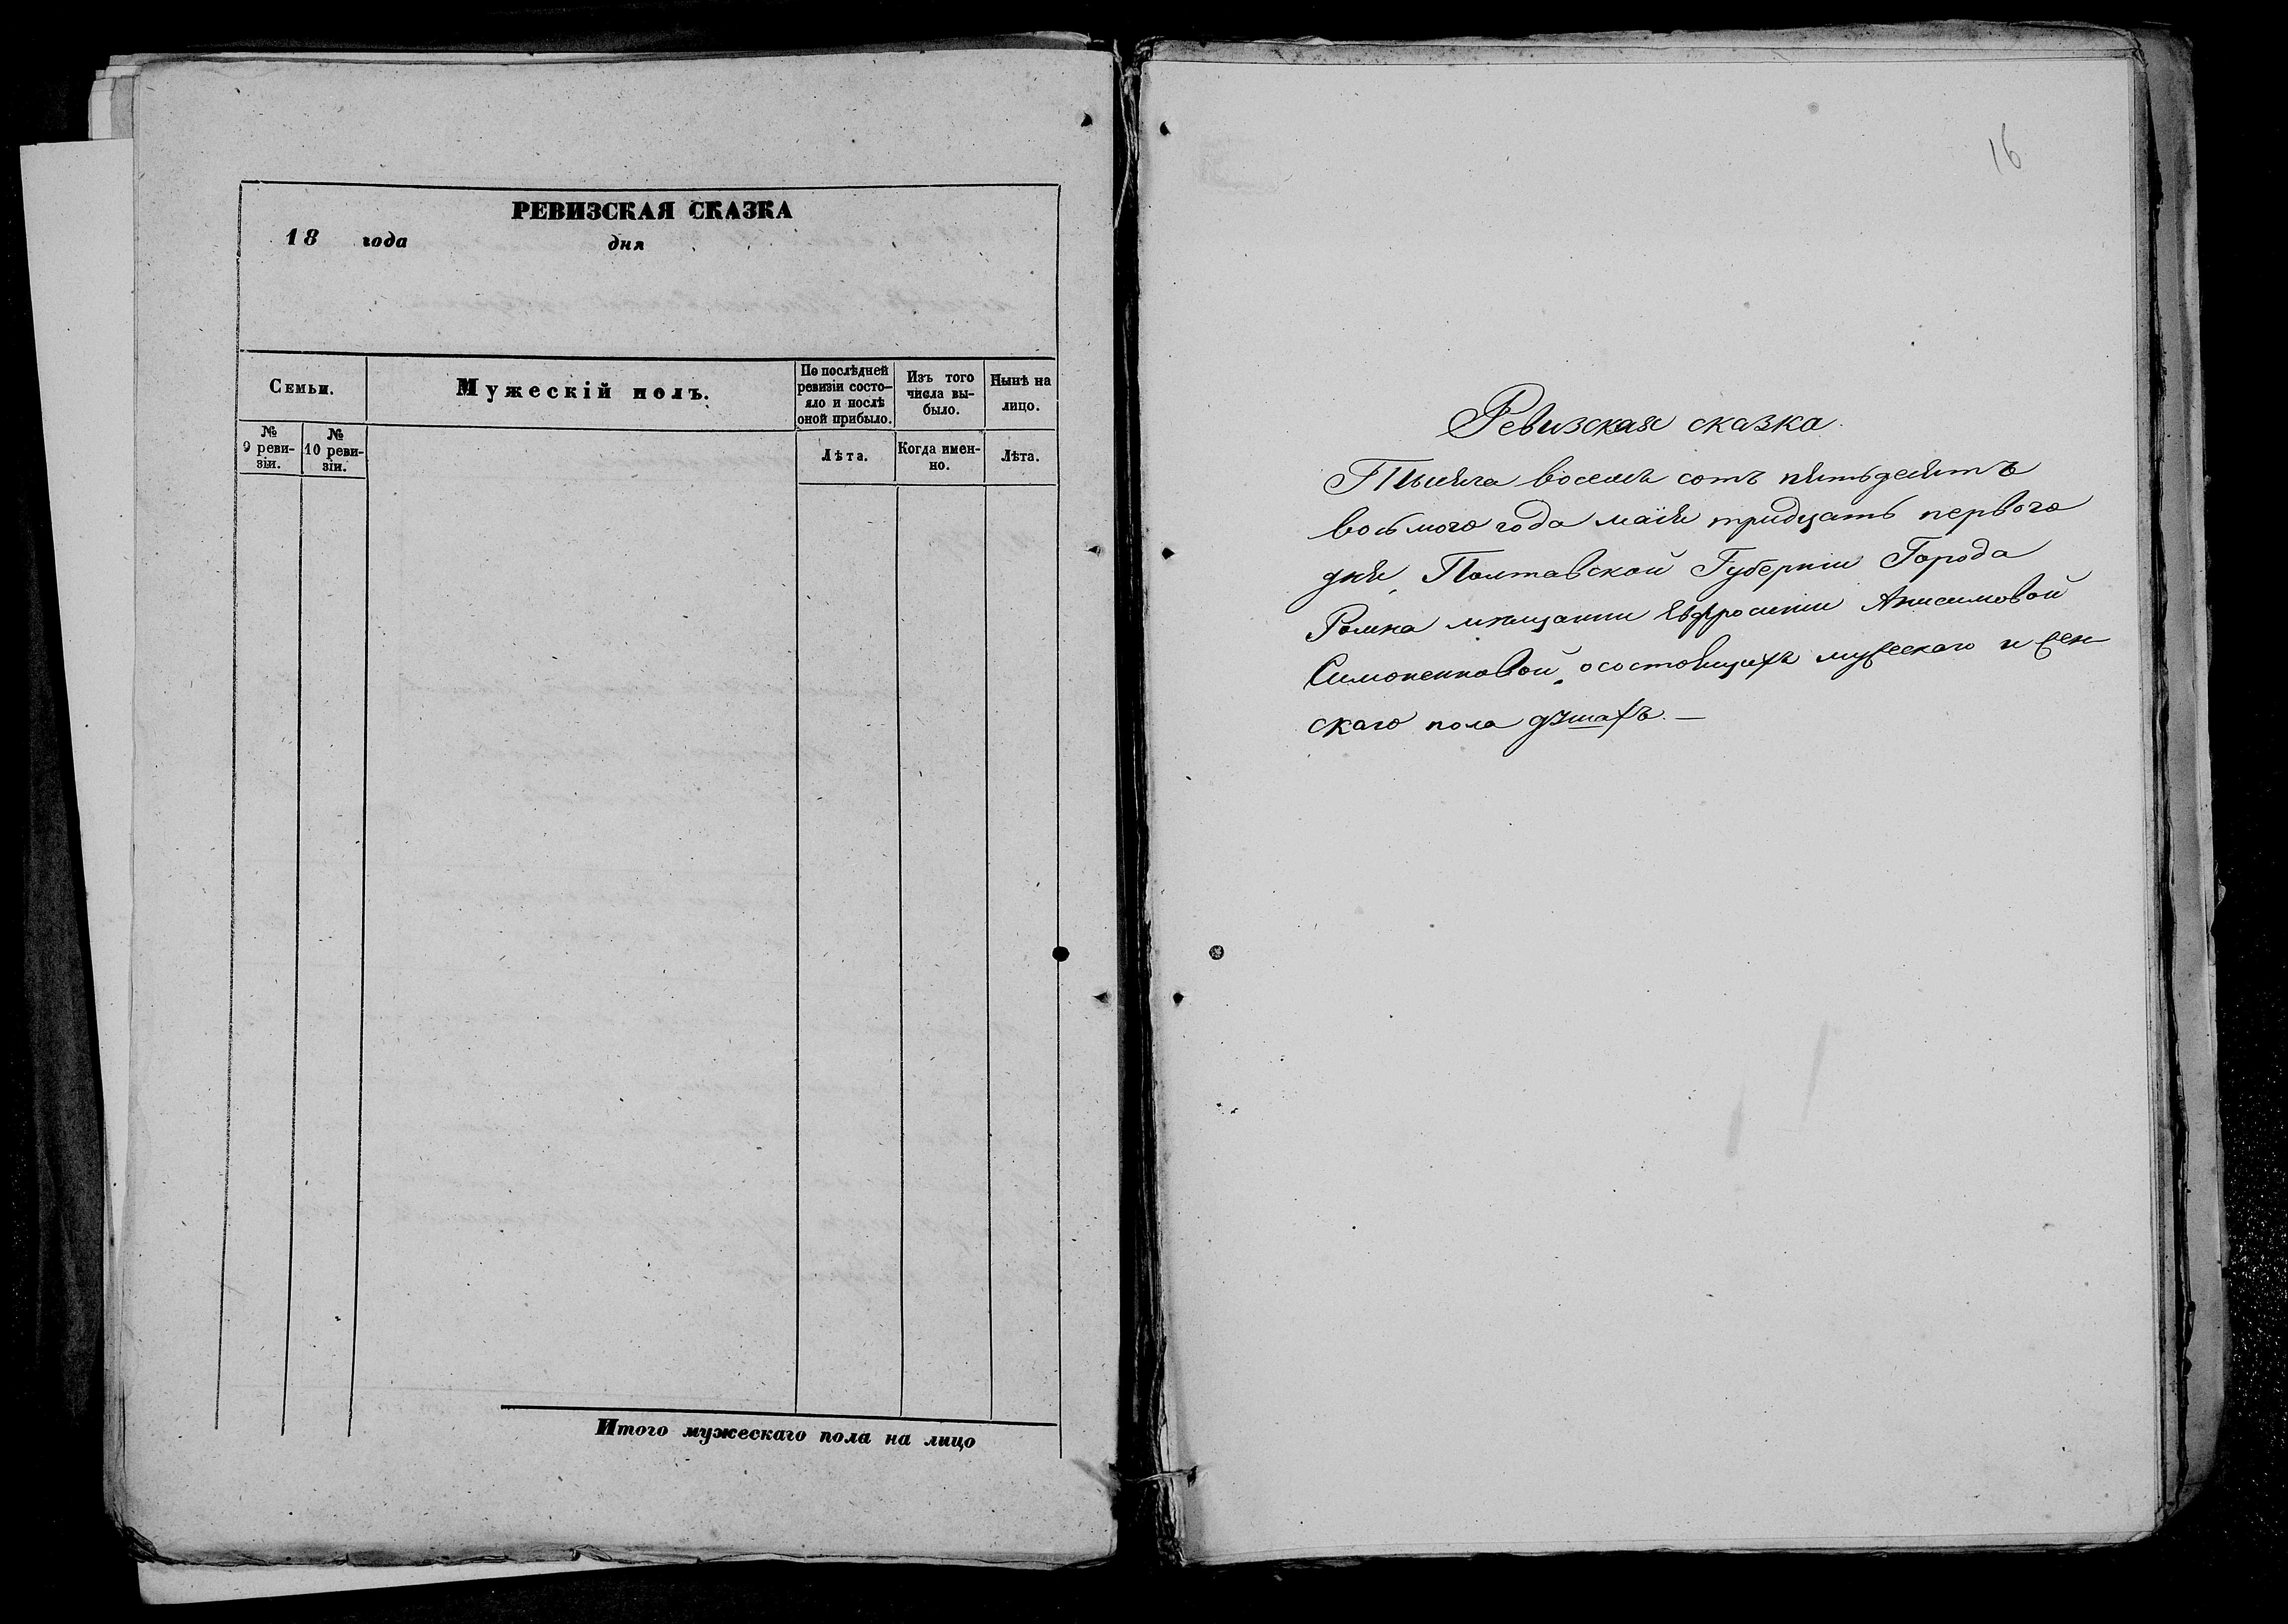 РЕВИЗСКАЯ СКАЗКА
18 года дня
Семьи.
Мужескій полъ.
По послѣдней ревизіи состо-
яло и послѣ оной прибыло.
Изъ того числа вы-
было.
Нынѣ на лицо.
№ 9 реви-
зіи.
№ 10 реви-
зіи.
Лѣта.
Когда имен-
но.
Лѣта.
Итого мужескаго пола на лицо
16
Ревизская сказка.
Тысяча восемь сотъ пятьдесятъ
восьмого года маія тридцать первого
дня, Полтавской Губерніи Города
Ромна мѣщанки Евфросиніи Анисимовой
Симоненковой, о состоящихъ мужескаго и жен-
скаго пола душахъ. —